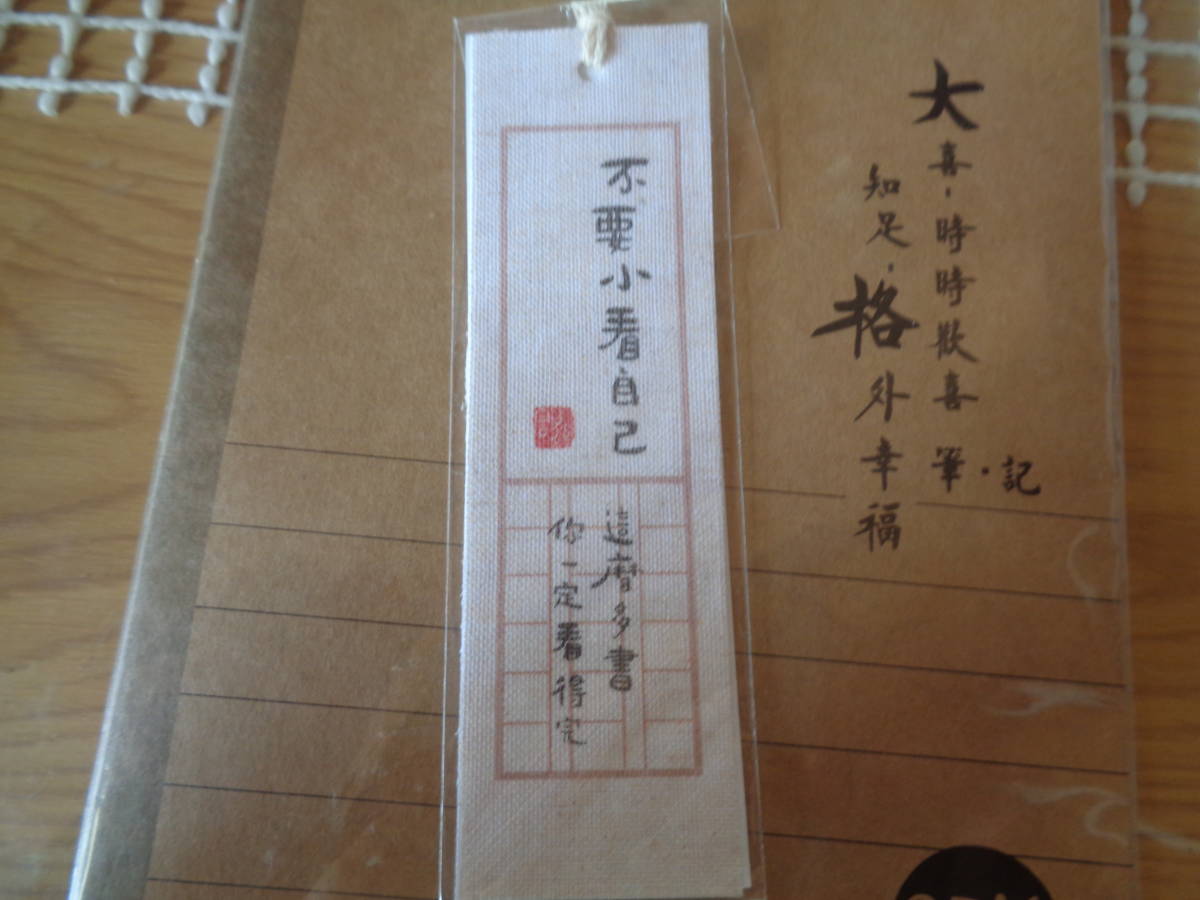 不要小看自己
這麼多書
你一定看得完
大喜,時時歡喜 筆·記
知足,格外幸福